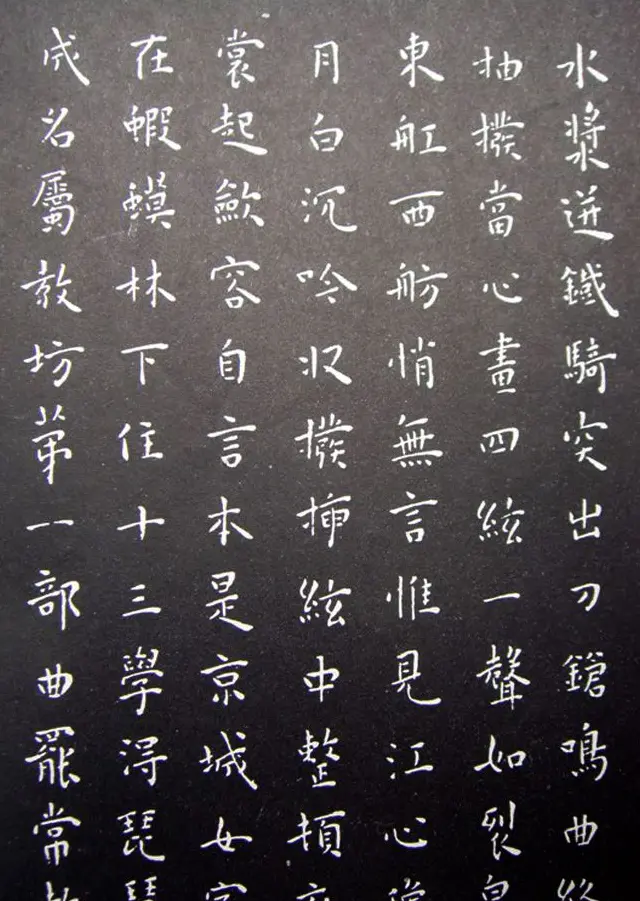 水漿迸鐵騎突出刀鎗鳴曲
抽撥當心畫四絃一聲如裂
東舡西舫悄無言惟見江心
月白沉吟収撥挿絃中整頓
裳起歛容自言本是京城女
在蝦蟆林下住十三學得琵
成名屬教坊苐一部曲罷常